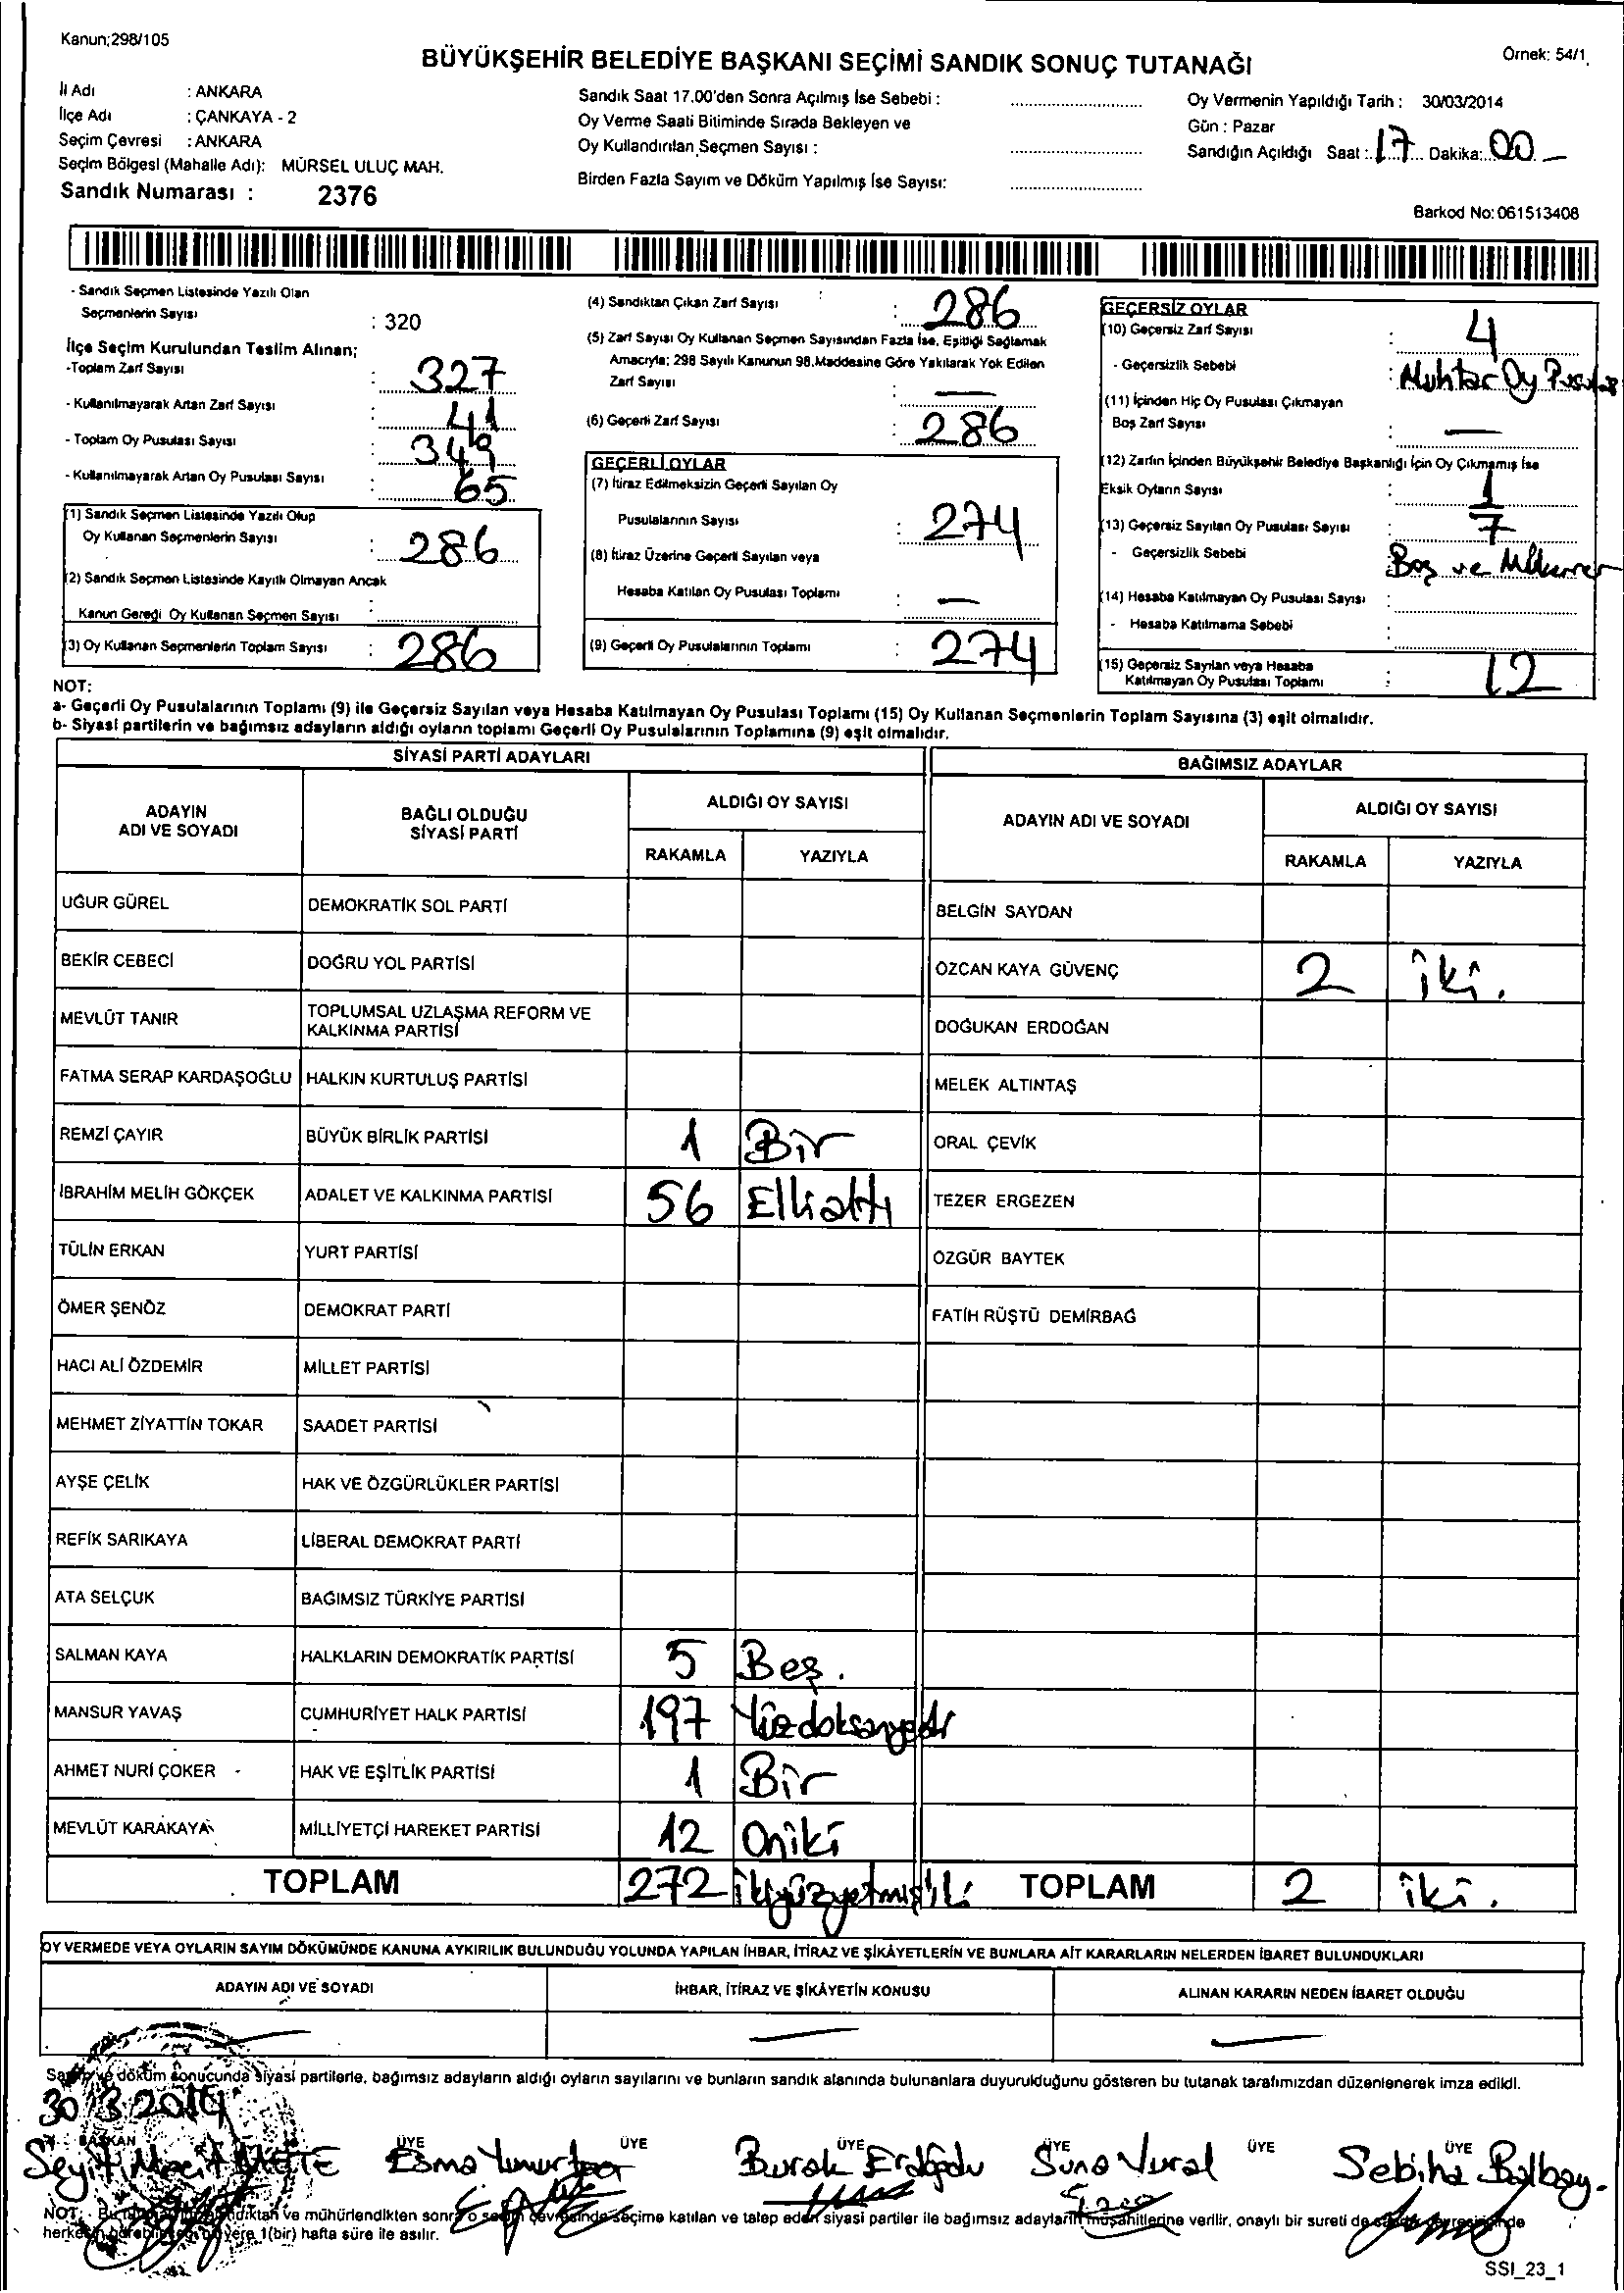 Kanun;298/105
Örnek: 54/1
BÜYÜKŞEHİR BELEDİYE BAŞKANI SEÇİMİ SANDIK SONUÇ TUTANAĞI
İl Adı : ANKARA
İlçe Adı : ÇANKAYA - 2
Seçim Çevresi : ANKARA
Seçim Bölgesi (Mahalle Adı): MÜRSEL ULUÇ MAH.
Sandık Numarası : 2376
Sandık Saat 17.00'den Sonra Açılmış İse Sebebi :
Oy Verme Saati Bitiminde Sırada Bekleyen ve
Oy Kullandırılan Seçmen Sayısı :
Birden Fazla Sayım ve Döküm Yapılmış İse Sayısı:
Oy Vermenin Yapıldığı Tarih : 30/03/2014
Gün : Pazar
Sandığın Açıldığı Saat : 17 Dakika: 00
Barkod No: 061513408
- Sandık Seçmen Listesinde Yazılı Olan
Seçmenlerin Sayısı : 320
İlçe Seçim Kurulundan Teslim Alınan;
-Toplam Zarf Sayısı : 327
- Kullanılmayarak Artan Zarf Sayısı : 41
- Toplam Oy Pusulası Sayısı : 349
- Kullanılmayarak Artan Oy Pusulası Sayısı : 65
(1) Sandık Seçmen Listesinde Yazılı Olup
Oy Kullanan Seçmenlerin Sayısı : 286
(2) Sandık Seçmen Listesinde Kayıtlı Olmayan Ancak
Kanun Gereği Oy Kullanan Seçmen Sayısı :
(3) Oy Kullanan Seçmenlerin Toplam Sayısı : 286
(4) Sandıktan Çıkan Zarf Sayısı : 286
(5) Zarf Sayısı Oy Kullanan Seçmen Sayısından Fazla İse, Eşitliği Sağlamak
Amacıyla; 298 Sayılı Kanunun 98.Maddesine Göre Yakılarak Yok Edilen
Zarf Sayısı : —
(6) Geçerli Zarf Sayısı : 286
GEÇERLİ OYLAR
(7) İtiraz Edilmeksizin Geçerli Sayılan Oy
Pusulalarının Sayısı : 274
(8) İtiraz Üzerine Geçerli Sayılan veya
Hesaba Katılan Oy Pusulası Toplamı : —
(9) Geçerli Oy Pusulalarının Toplamı : 274
GEÇERSİZ OYLAR
(10) Geçersiz Zarf Sayısı : 4
- Geçersizlik Sebebi : Muhtar Oy
(11) İçinden Hiç Oy Pusulası Çıkmayan
Boş Zarf Sayısı : —
(12) Zarfın İçinden Büyükşehir Belediye Başkanlığı İçin Oy Çıkmamış İse
Eksik Oyların Sayısı : 1
(13) Geçersiz Sayılan Oy Pusulası Sayısı : 7
- Geçersizlik Sebebi Boş ve Mükerrer
(14) Hesaba Katılmayan Oy Pusulası Sayısı :
- Hesaba Katılmama Sebebi :
(15) Geçersiz Sayılan veya Hesaba
Katılmayan Oy Pusulası Toplamı : 12
NOT:
a- Geçerli Oy Pusulalarının Toplamı (9) ile Geçersiz Sayılan veya Hesaba Katılmayan Oy Pusulası Toplamı (15) Oy Kullanan Seçmenlerin Toplam Sayısına (3) eşit olmalıdır.
b- Siyasi partilerin ve bağımsız adayların aldığı oyların toplamı Geçerli Oy Pusulalarının Toplamına (9) eşit olmalıdır.
SİYASİ PARTİ ADAYLARI
ADAYIN ADI VE SOYADI BAĞLI OLDUĞU SİYASİ PARTİ ALDIĞI OY SAYISI
RAKAMLA YAZIYLA
UĞUR GÜREL DEMOKRATİK SOL PARTİ
BEKİR CEBECİ DOĞRU YOL PARTİSİ
MEVLÜT TANIR TOPLUMSAL UZLAŞMA REFORM VE
KALKINMA PARTİSİ
FATMA SERAP KARDAŞOĞLU HALKIN KURTULUŞ PARTİSİ
REMZİ ÇAYIR BÜYÜK BİRLİK PARTİSİ 1 Bir
İBRAHİM MELİH GÖKÇEK ADALET VE KALKINMA PARTİSİ 56 Ellialtı
TÜLİN ERKAN YURT PARTİSİ
ÖMER ŞENÖZ DEMOKRAT PARTİ
HACI ALİ ÖZDEMİR MİLLET PARTİSİ
MEHMET ZİYATTİN TOKAR SAADET PARTİSİ
AYŞE ÇELİK HAK VE ÖZGÜRLÜKLER PARTİSİ
REFİK SARIKAYA LİBERAL DEMOKRAT PARTİ
ATA SELÇUK BAĞIMSIZ TÜRKİYE PARTİSİ
SALMAN KAYA HALKLARIN DEMOKRATİK PARTİSİ 5 Beş.
MANSUR YAVAŞ CUMHURİYET HALK PARTİSİ 197 Yüzdoksanyedi
AHMET NURİ ÇOKER HAK VE EŞİTLİK PARTİSİ 1 Bir
MEVLÜT KARAKAYA MİLLİYETÇİ HAREKET PARTİSİ 12 Oniki
TOPLAM 272 ikiyüzyetmişiki
BAĞIMSIZ ADAYLAR
ADAYIN ADI VE SOYADI ALDIĞI OY SAYISI
RAKAMLA YAZIYLA
BELGİN SAYDAN
ÖZCAN KAYA GÜVENÇ 2 iki.
DOĞUKAN ERDOĞAN
MELEK ALTINTAŞ
ORAL ÇEVİK
TEZER ERGEZEN
ÖZGÜR BAYTEK
FATİH RÜŞTÜ DEMİRBAĞ
TOPLAM 2 iki.
OY VERMEDE VEYA OYLARIN SAYIM DÖKÜMÜNDE KANUNA AYKIRILIK BULUNDUĞU YOLUNDA YAPILAN İHBAR, İTİRAZ VE ŞİKÂYETLERİN VE BUNLARA AİT KARARLARIN NELERDEN İBARET BULUNDUKLARI
ADAYIN ADI VE SOYADI İHBAR, İTİRAZ VE ŞİKÂYETİN KONUSU ALINAN KARARIN NEDEN İBARET OLDUĞU
— — —
Sayım ve döküm sonucunda siyasi partilerle, bağımsız adayların aldığı oyların sayılarını ve bunların sandık alanında bulunanlara duyurulduğunu gösteren bu tutanak tarafımızdan düzenlenerek imza edildi.
30 3 2014
BAŞKAN ÜYE ÜYE ÜYE ÜYE ÜYE ÜYE
Seyit METE Esma Burak Erdoğdu Suna Vural Sebiha Balbay.
NOT: ve mühürlendikten sonra o seçim çevresinde seçime katılan ve talep eden siyasi partiler ile bağımsız adayların müşahitlerine verilir, onaylı bir sureti de
herkesin 1(bir) hafta süre ile asılır.
SSI_23_1